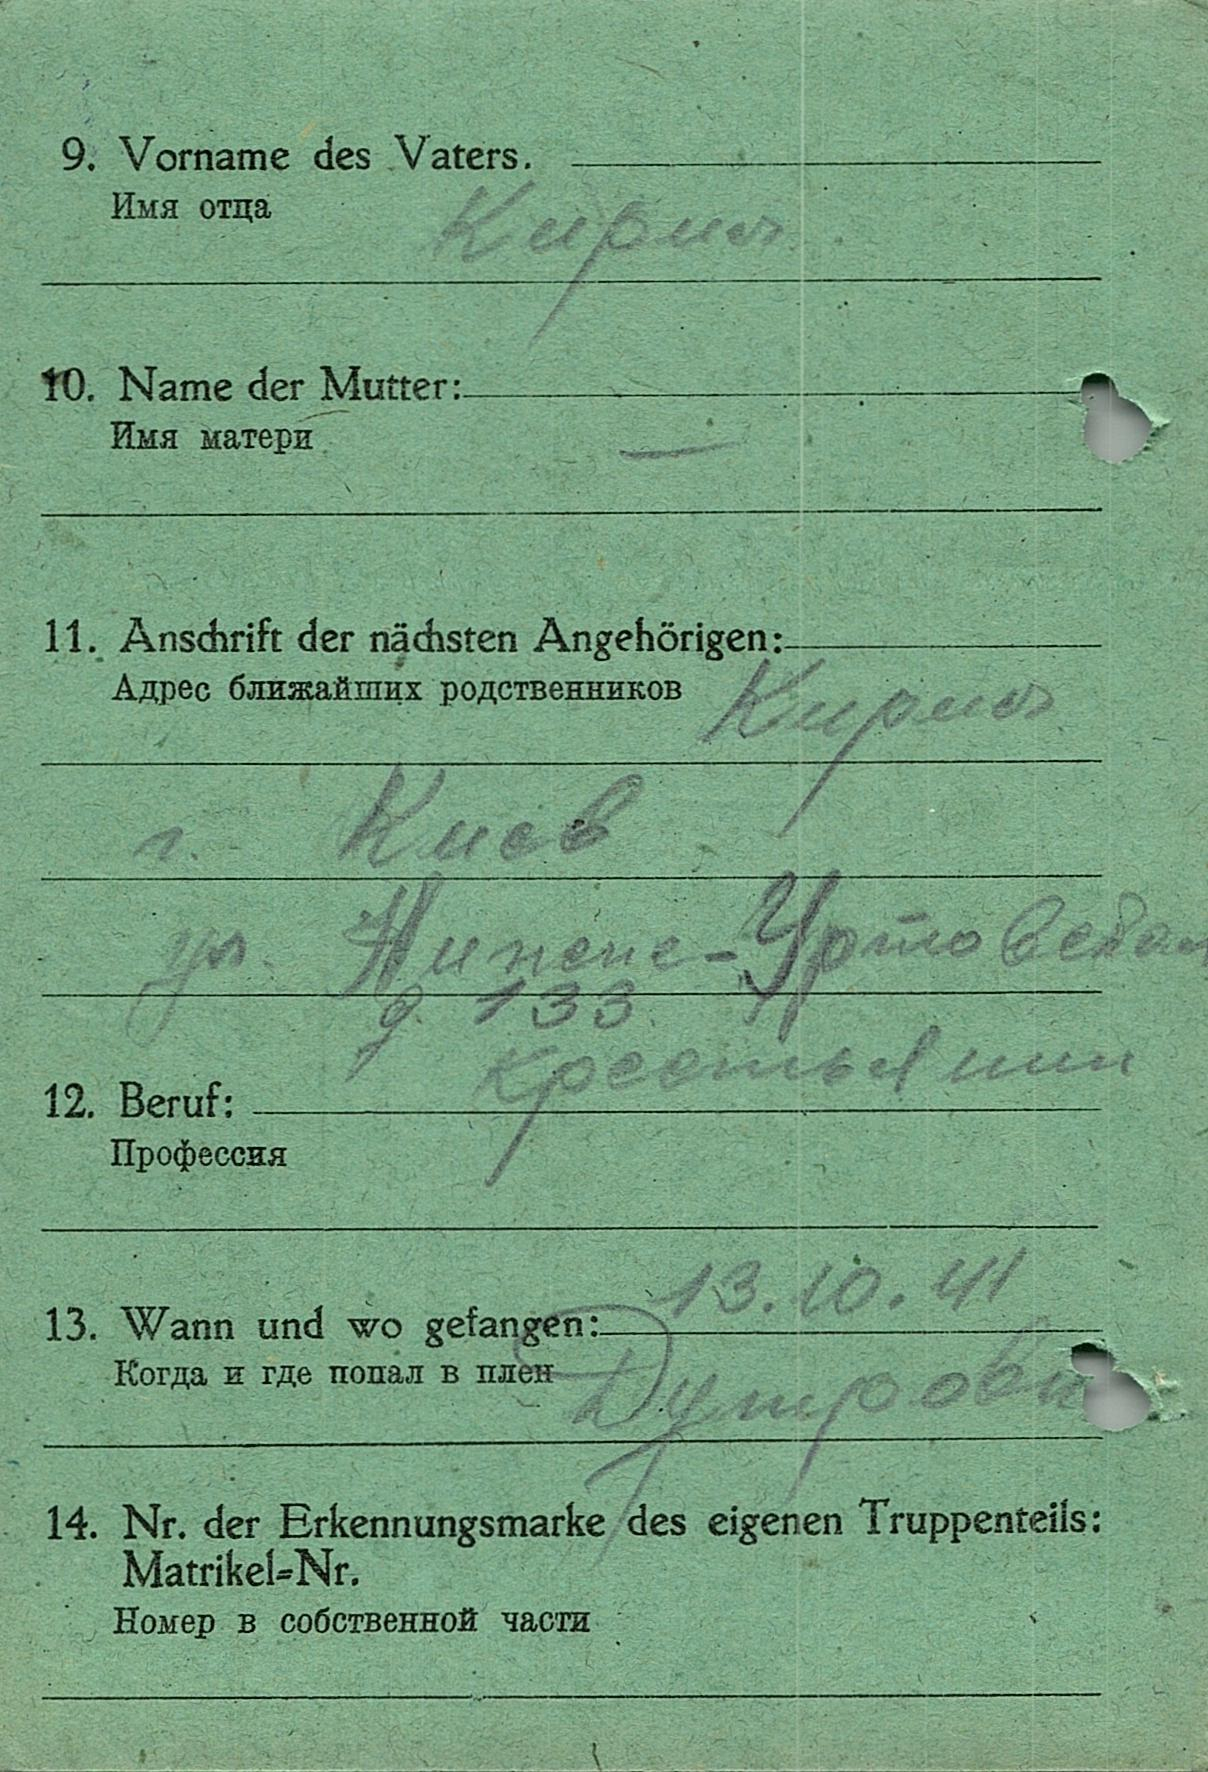 9. Vorname des Vaters.
Имя отца
Кирил
10. Name der Mutter:
Имя матери
—
11. Anschrift der nächsten Angehörigen:
Адрес ближайших родственников
Кирил
г. Киев
ул.
д. 133
крестьянин
12. Beruf:
Профессия
13.10.41
13. Wann und wo gefangen:
Когда и где попал в плен
14. Nr. der Erkennungsmarke des eigenen Truppenteils:
Matrikel=Nr.
Номер в собственной части